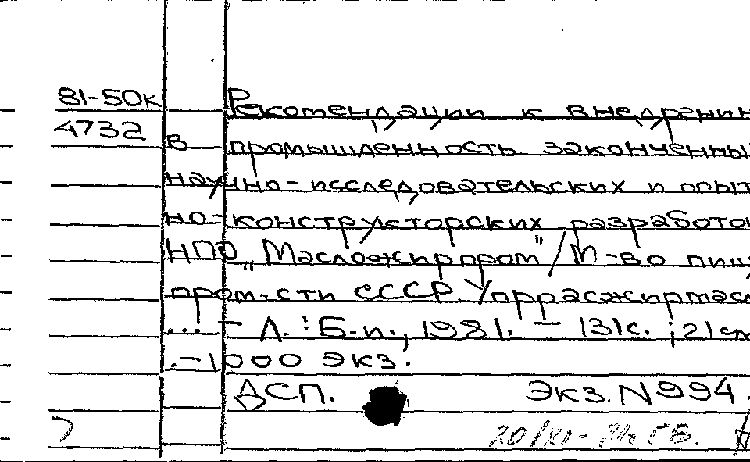 81-50к Рекомендации к внедрени
4732 в промышленность законченны
научно-исследовательских и опыт
но-конструкторских разработо
НПО „Масложирпром“/М-во пищ
пром-сти СССР. Упррасжирмас
... – Л.: Б.и., 1981. – 131с.; 21см
.–1000 экз.
ДСП. Экз.N994.